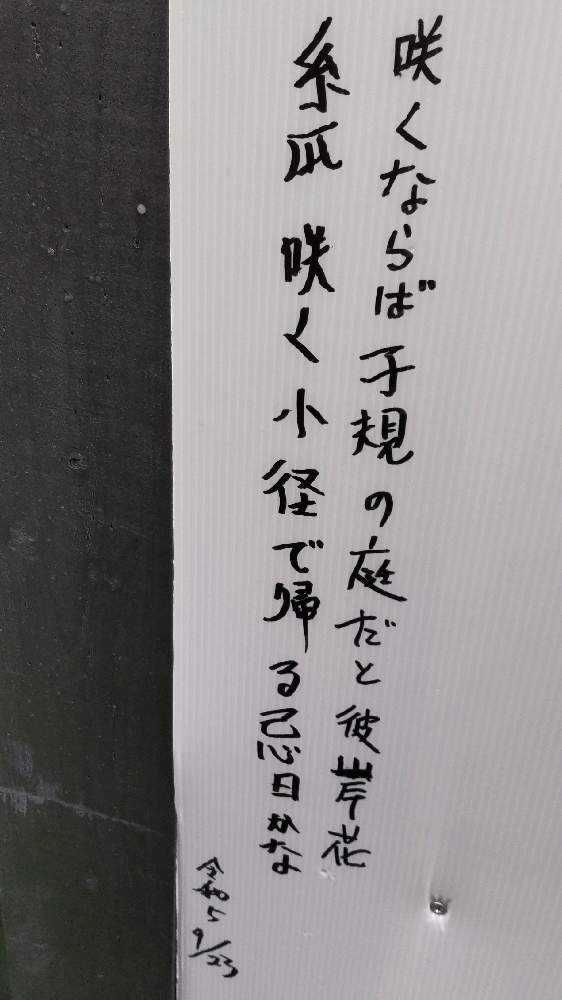 咲くならば子規の庭だと彼岸花
糸瓜 咲く小径で帰る忌日かな
令和5 9/23